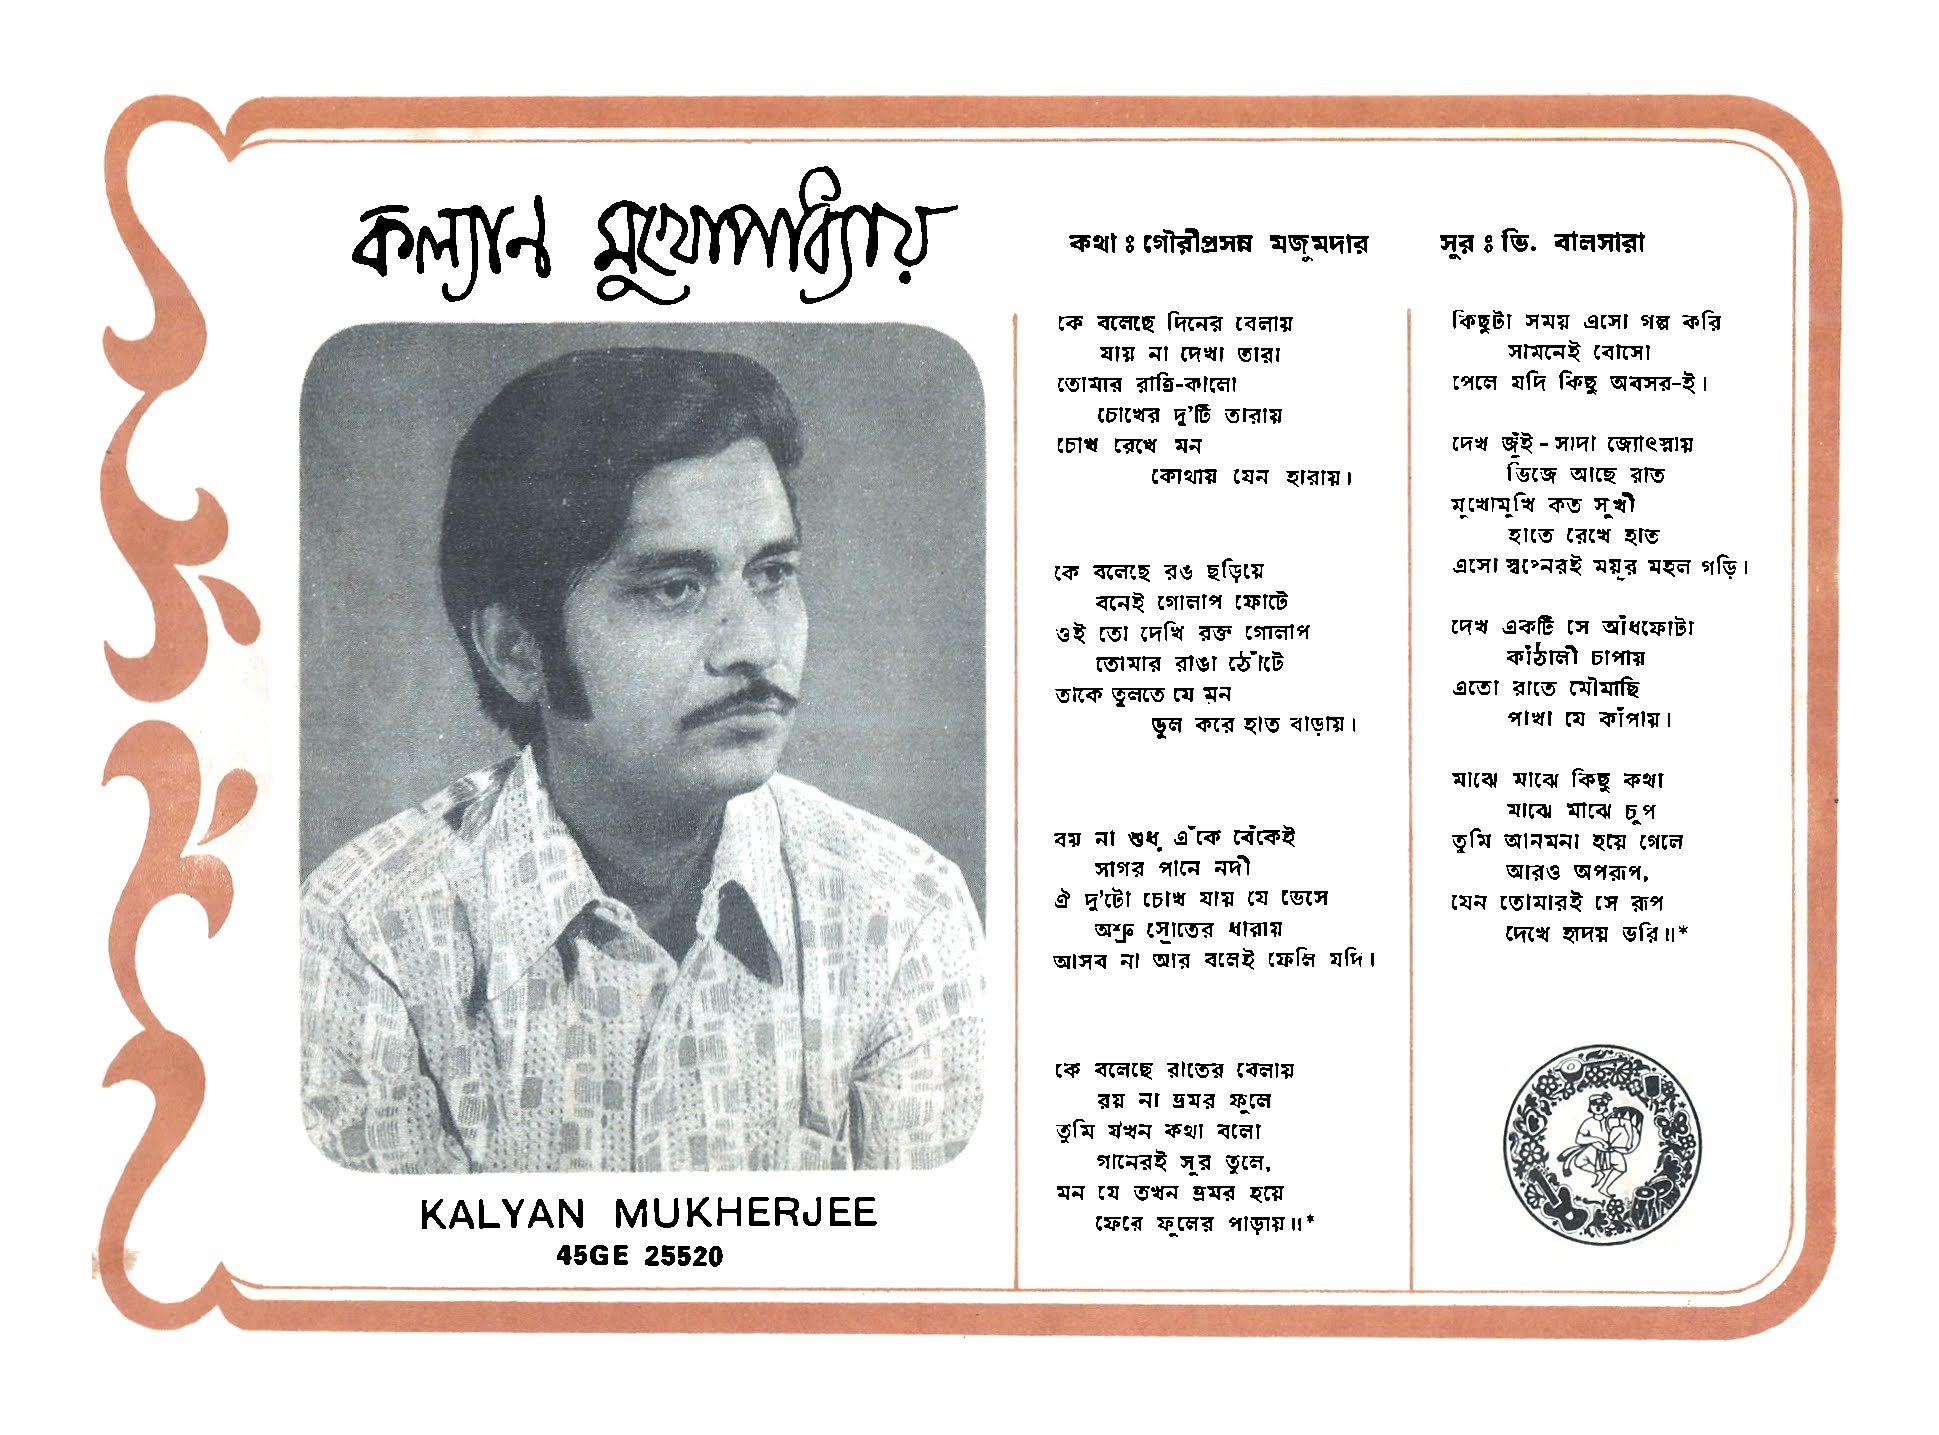 কল্যান মুখোপাধ্যায়
KALYAN MUKHERJEE
45GE 25520
কথা : গৌরীপ্রসন্ন মজুমদার
সুর : ভি. বালসারা
কে বলেছে দিনের বেলায়
যায় না দেখা তারা
তোমার রাত্রি-কালো
চোখের দু'টি তারায়
চোখ রেখে মন
কোথায় যেন হারায়।
কে বলেছে রঙ ছড়িয়ে
বনেই গোলাপ ফোটে
ওই তো দেখি রক্ত গোলাপ
তোমার রাঙা ঠোঁটে
তাকে তুলতে যে মন
ভুল করে হাত বাড়ায়।
বয় না শুধু এঁকে বেঁকেই
সাগর পানে নদী
ঐ দু'টো চোখ যায় যে ভেসে
অশ্রু স্রোতের ধারায়
আসব না আর বলেই ফেলি যদি।
কে বলেছে রাতের বেলায়
রয় না ভ্রমর ফুলে
তুমি যখন কথা বলো
গানেরই সুর তুলে,
মন যে তখন ভ্রমর হয়ে
ফেরে ফুলের পাড়ায়॥*
কিছুটা সময় এসো গল্প করি
সামনেই বোসো
পেলে যদি কিছু অবসর-ই।
দেখ জুঁই-সাদা জ্যোৎস্নায়
ভিজে আছে রাত
মুখোমুখি কত সুখী
হাতে রেখে হাত
এসো স্বপ্নেরই ময়ূর মহল গড়ি।
দেখ একটি সে আঁধফোটা
কাঁঠালী চাপায়
এতো রাতে মৌমাছি
পাখা যে কাঁপায়।
মাঝে মাঝে কিছু কথা
মাঝে মাঝে চুপ
তুমি আনমনা হয়ে গেলে
আরও অপরূপ,
যেন তোমারই সে রূপ
দেখে হৃদয় ভরি॥*